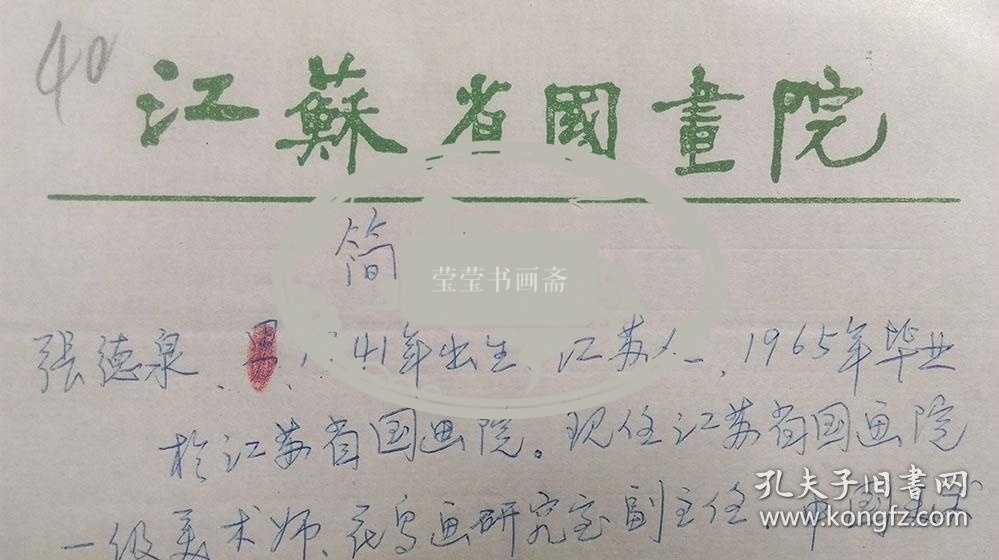 40
江蘇省國畫院
简
莹莹书画斋
張德泉、男、41年出生、江苏人、1965年毕业
於江苏省国画院。现任江苏省国画院
一级美术师、花鸟画研究室副主任
孔夫子旧书网
www.kongfz.com